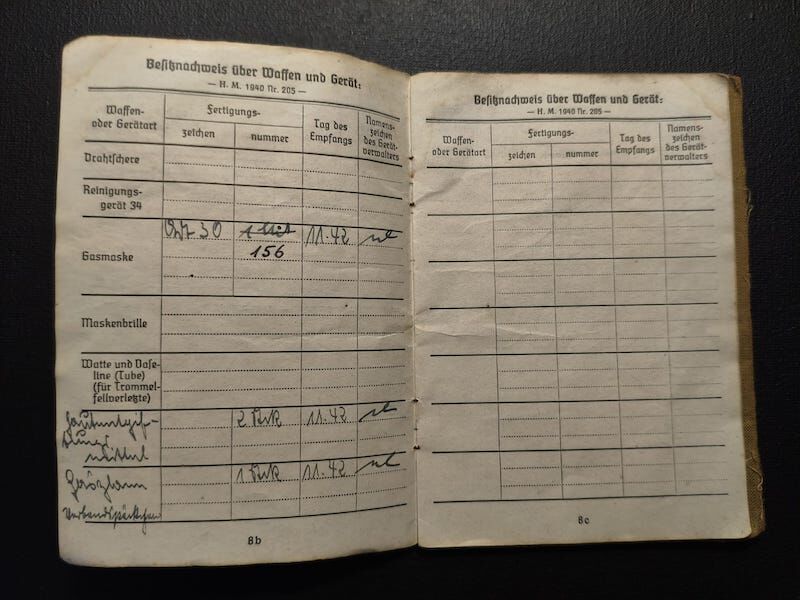 Besitznachweis über Waffen und Gerät:
— H. M. 1940 Nr. 205 —
Waffen-
oder Gerätart
Fertigungs-
zeichen
nummer
Tag des
Empfangs
Namens-
zeichen
des Gerät-
verwalters
Drahtschere
Reinigungs-
gerät 34
Gasmaske
30 11.42
156
Maskenbrille
Watte und Vase-
line (Tube)
(für Trommel-
fellverletzte)
2 11.42
1 11.42
Verbandspäckchen
8b
Besitznachweis über Waffen und Gerät:
— H. M. 1940 Nr. 205 —
Waffen-
oder Gerätart
Fertigungs-
zeichen
nummer
Tag des
Empfangs
Namens-
zeichen
des Gerät-
verwalters
8c